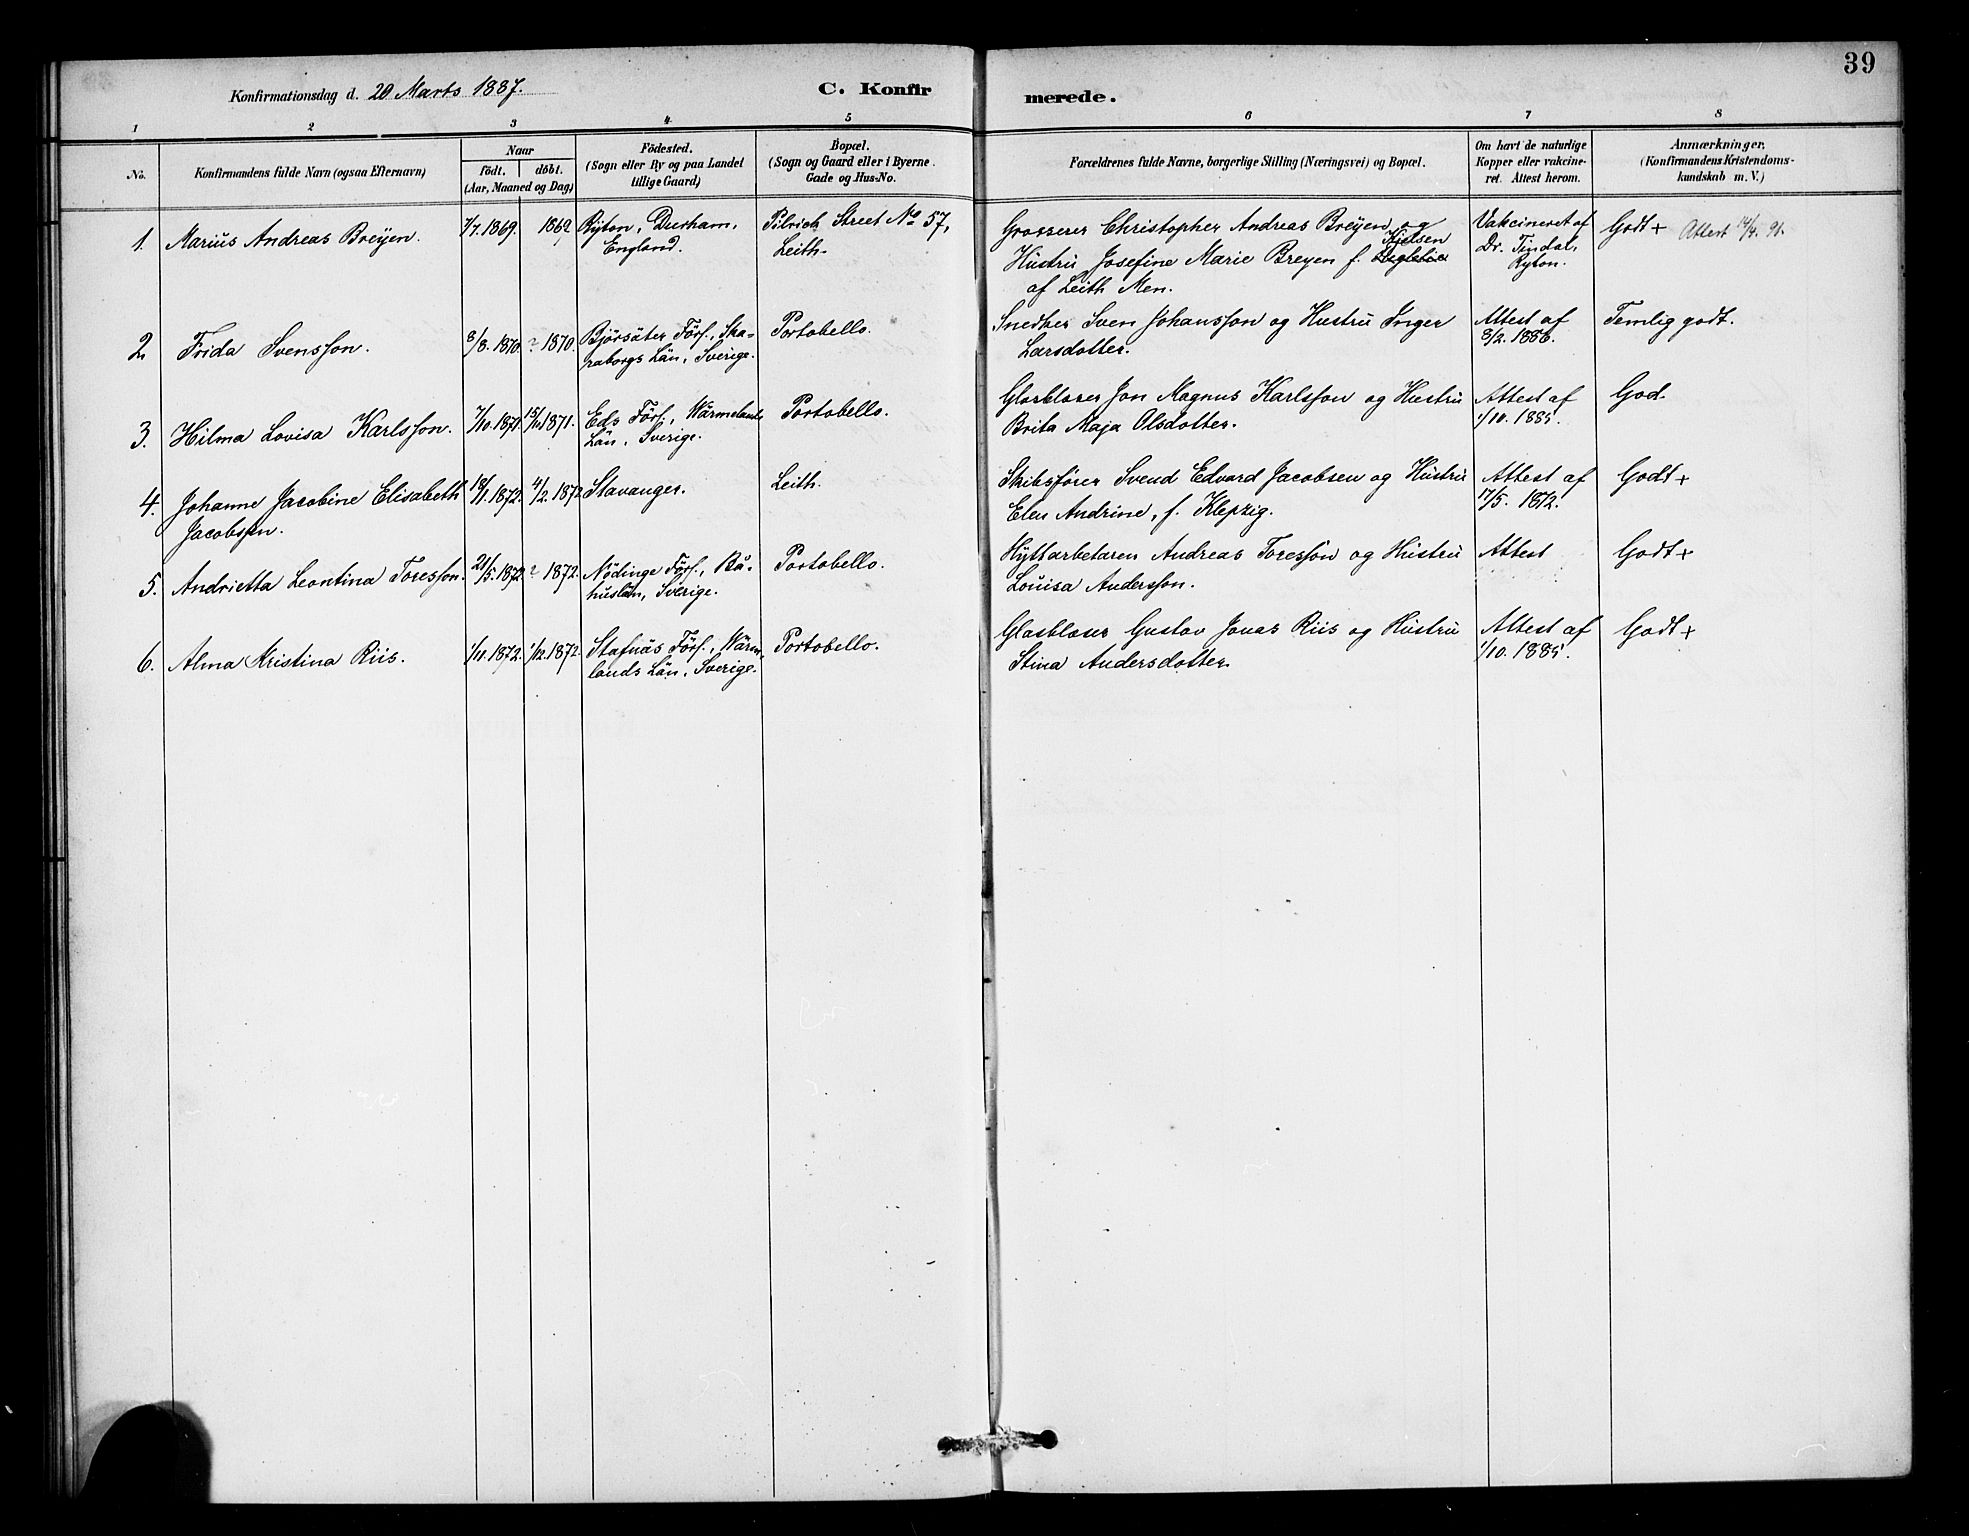 39
Konfirmationsdag d. 20 Marts 1887.
C. Konfirmerede.
1 2 3 4 5 6 7 8
No.
Konfirmandens fulde Navn (ogsaa Efternavn)
Naar
födt. döbt.
(Aar, Maaned og Dag)
Födested.
(Sogn eller By og paa Landet
tillige Gaard)
Bopæl.
(Sogn og Gaard eller i Byerne
Gade og Hus-No.
Forældrenes fulde Navne, borgerlige Stilling (Næringsvei) og Bopæl.
Om havt de naturlige
Kopper eller vakcine-
ret. Attest herom.
Anmærkninger,
(Konfirmandens Kristendoms-
kundskab m. V.)
1. Marius Andreas Breyen. 7/7. 1869. 1869 Ryton, Durham, Pilrich Street No 57, Grosserer Christopher Andreas Breyen og Vakcineret af Godt + Attest 14/4. 91.
England. Leith. Hustru Josefine Marie Breyen f. Kielsen Dr. Tindal,
af Leith Men. Ryton.
2. Frida Svensson. 8/8. 1870. ? 1870. Björsäter Förs., Ska- Portobello. Snedker Sven Johansson og Hustru Inger Attest af Temlig godt.
raborgs Län, Sverige. Larsdotter. 8/2. 1886.
3. Hilma Lovisa Karlsson. 7/10. 1871. 15/10. 1871. Eds Förs., Wärmelands Portobello. Glasblaser Jon Magnus Karlsson og Hustru Attest af God.
Län, Sverige. Brita Maja Olsdotter. 1/10. 1885.
4. Johanne Jacobine Elisabeth 18/1. 1872. 4/2. 1872 Stavanger. Leith. Skibsförer Svend Edvard Jacobsen og Hustru Attest af Godt +
Jacobsen. Elen Andrine, f. Klepzig. 17/5. 1872.
5. Andrietta Leontina Toresson. 21/5. 1872. ? 1872. Nödinge Förs., Bå- Portobello. Hyttarbetaren Andreas Toresson og Hustru Attest Godt +
huslän, Sverige. Louisa Andersson.
6. Alma Kristina Riis. 1/11. 1872. 1/12. 1872. Stafnäs Förs., Wärm- Portobello. Glasblaser Gustav Jonas Riis og Hustru Attest af Godt +
lands Län, Sverige. Stina Andersdotter. 1/10. 1885.